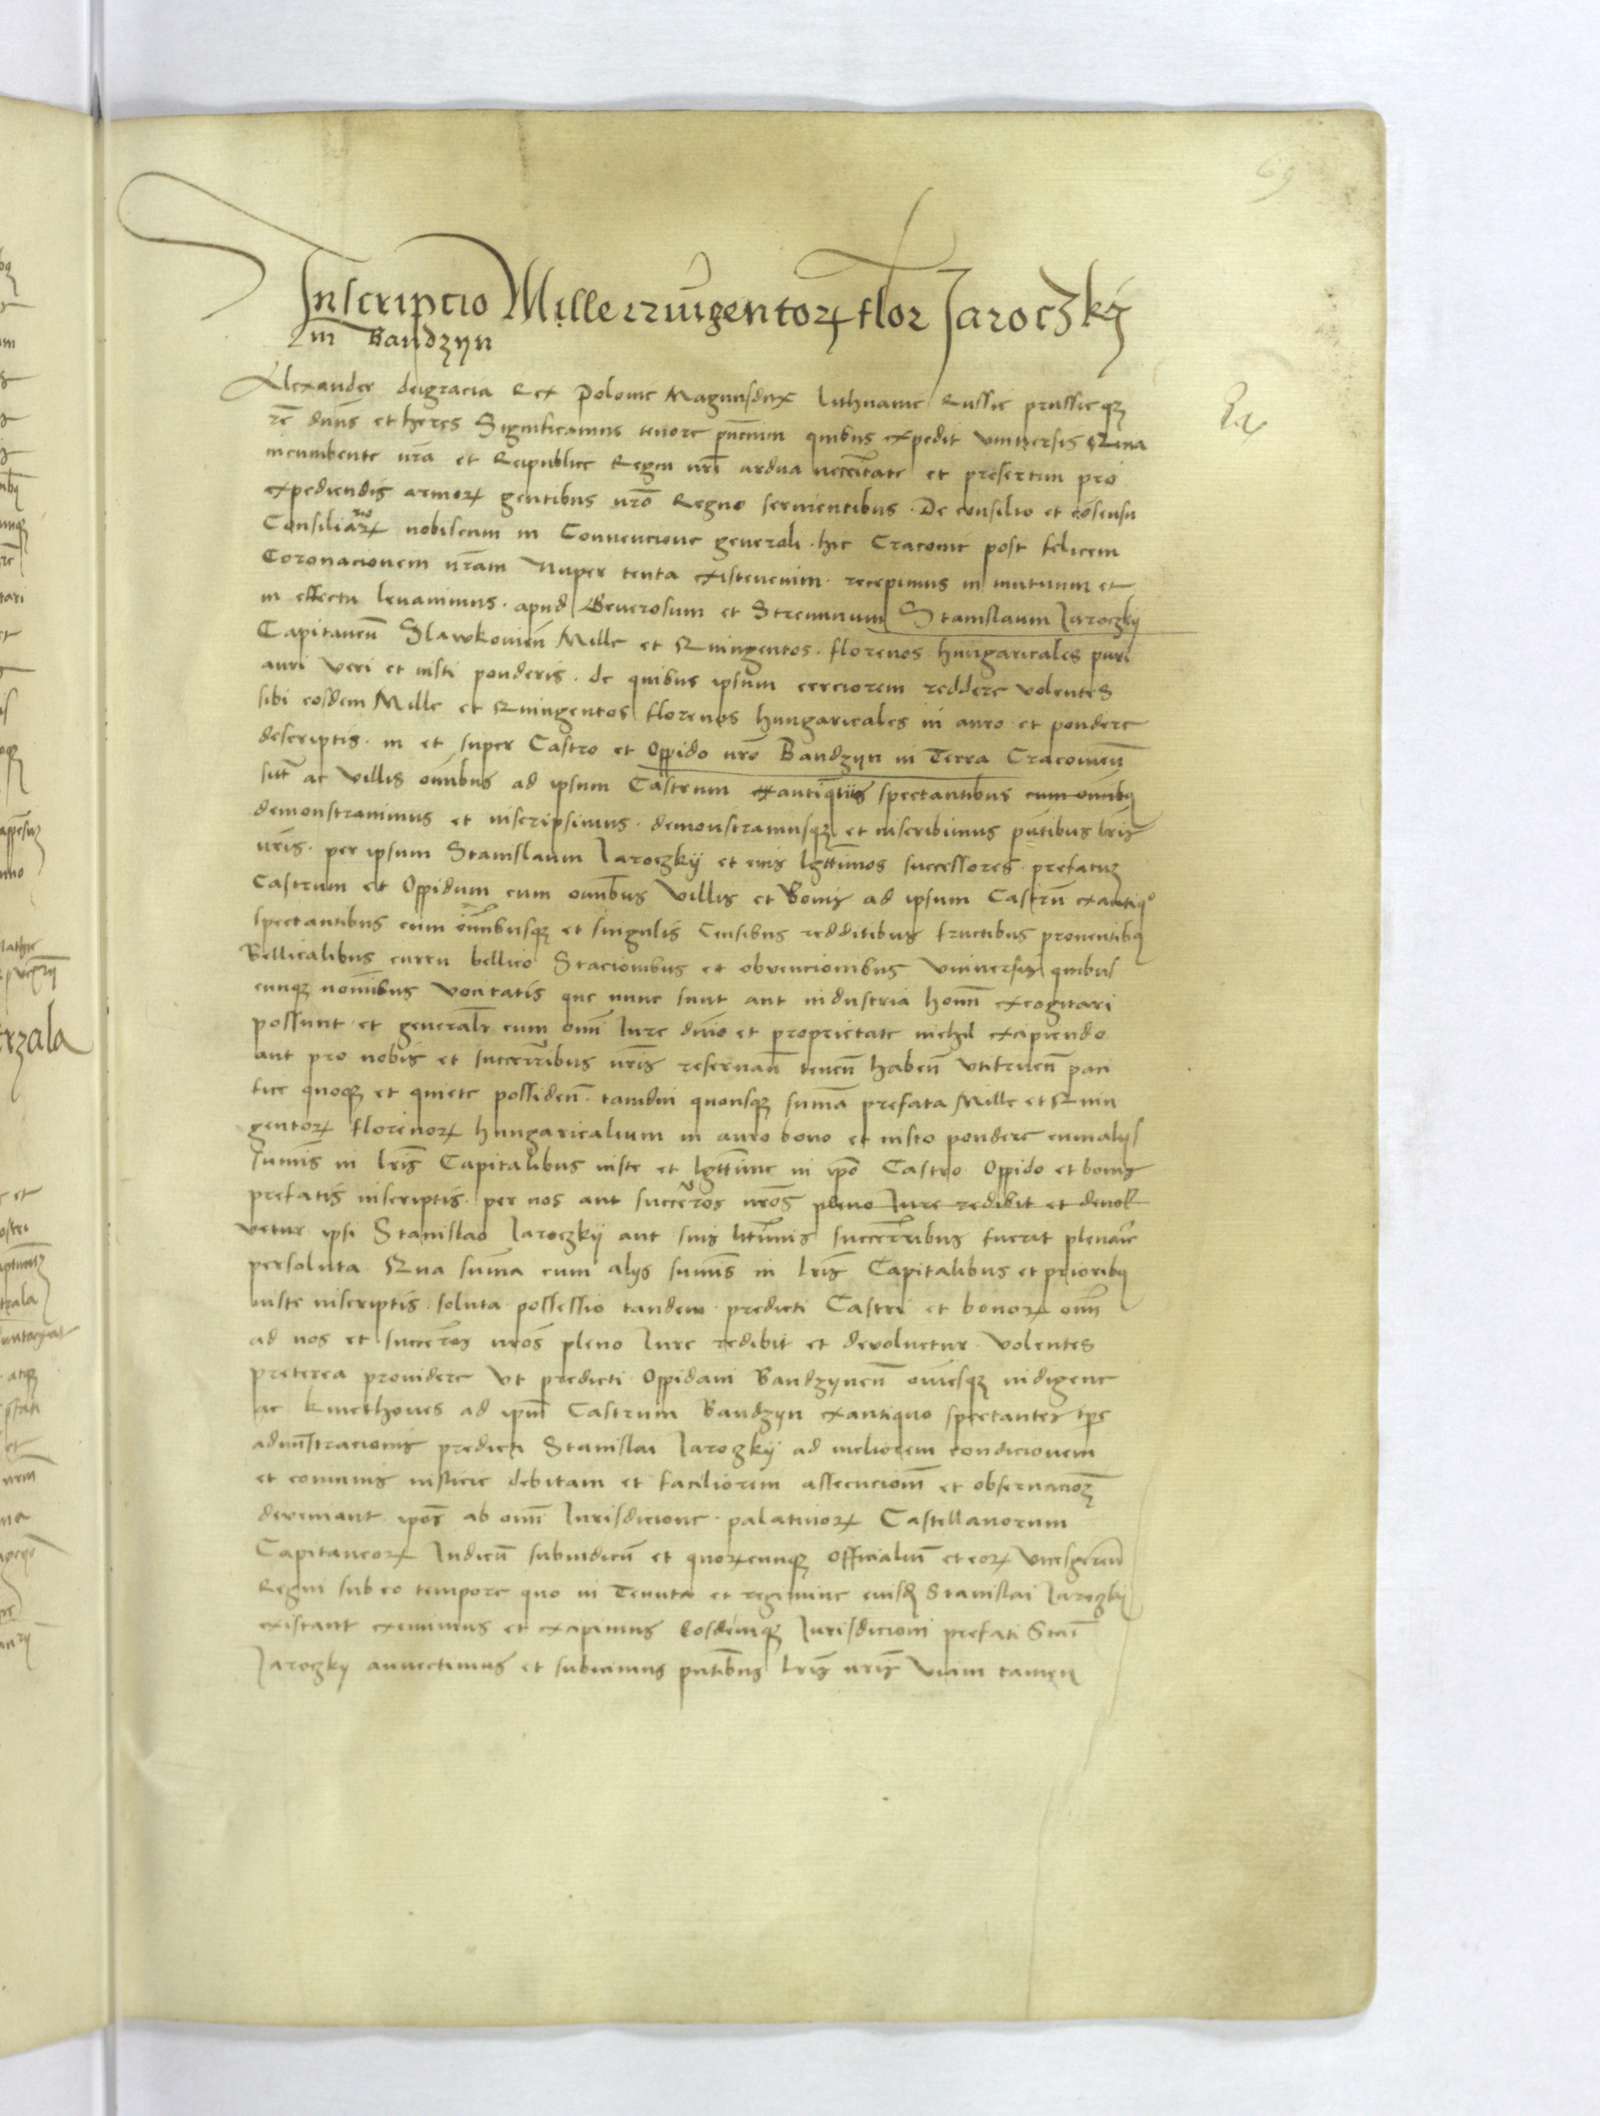 69
Inscripcio Mille quingentorꝝ flor Jaroczkÿ
in Bandzÿn
Alexander deigracia Rex Polonie Magnusdux Lithuanie Russie prussieqꝫ
rē dūns et heres Significamus tenore pn̄cium quibus expedit vniuersis Quia
incumbente nr̄a et Reipublice Regni nrī ardua neccītate et presertim pro
expediendis armorꝝ gentibus nrō Regno seruientibus · De consilio et cōsensu
Consiliariorꝝ nobiscum in Convencione generali · hic Cracouie post felicem
Coronacionem nr̄am nuper tenta existencium · recepimus in mutuum et
in effectu leuauimus · apud Generosum et Strennuum Stanislaum Jaroczkÿ
Capitaneū Slawkouien̄ Mille et Quingentos · florenos hungaricales puri
auri veri et iusti ponderis · de quibus ipsum cerciorem reddere volentes
sibi eosdem Mille et Quingentos florenos hungaricales in auro et pondere
descriptis · in et super Castro et Oppido nrō Bandzÿn in Terra Cracouien̄
sit̄ ac villis om̄ibus ad ipsum Castrum exantiquis spectantibus cum om̄ibꝫ
demonstrauimus et inscripsimus · demonstramusqꝫ et inscribimus pn̄tibus lrīs
nrīs · per ipsum Stanislaum Jaroczkÿ et eius lgttīmos successores · prefatuꝫ
Castrum et Oppidum cum om̄ibus villis et Bonis ad ipsum Castrū exantiqᵒ
spectantibus cum om̄ibusqꝫ et singulis Censibus redditibus fructibus prouentibꝫ
Bellicalibus curru bellico Stacionibus et obvencionibus vniuersis quibus
cunqꝫ nomībus vocitatis que nunc sunt aut industria hom̄ excogitari
possunt et generalr̄ cum om̄i Jure dn̄io et proprietate nichil excipiendo
aut pro nobis et succer̄ribus nrīs reseruan̄ tenen̄ haben̄ vtifruen̄ paci
fice quoqꝫ et quiete possiden̄ · tamdiu quousqꝫ sum̄a prefata Mille et Quin
gentorꝝ florenorꝝ hungaricalium in auro bono et iusto pondere cumalÿs
sum̄is in lrīs Capitalibus iuste et lgttīme in ipō Castro Oppido et bonis
prefatis inscriptis · per nos aut succer̄os nrōs pleno Jure redibit et deuol
vetur ipsi Stanislao Jaroczkÿ aut suis litīmis succer̄ribus fuerit plenarīe
persoluta Qua sum̄a cum alÿs sum̄is in lrīs Capitalibus et prioribꝫ
iuste inscriptis · soluta possessio tandem predicti Castri et bonorꝝ om̄
ad nos et succer̄os nrōs pleno Jure redibit et devoluetur · volentes
preterea prouidere vt predicti Oppidani Bandzÿnen̄ om̄esqꝫ indigene
ac kmethones ad ipm̄ Castrum Bandzÿn exantiquo spectantes tp̄e
admīstracionis predicti Stanislai Jaroczkÿ ad meliorem condicionem
et com̄unis iusticie debitam et faciliorem assecucionē et obseruacioꝫ
deveniant ipōs ab om̄i Jurisdicione · palatinorꝝ Castellanorum
Capitaneorꝝ Judicū subiudicū et quorꝝcunqꝫ Officialiū et eorꝝ vicesgeren̄
Regni sub eo tempore quo in Tenuta et regimine eiusdꝫ Stanislai Jaroczkÿ
existant eximimus et excipimus Eosdemqꝫ Jurisdicioni prefati Stāī
Jaroczkÿ annectimus et subicimus pn̄tibus lrīs nrīs Viam tamen